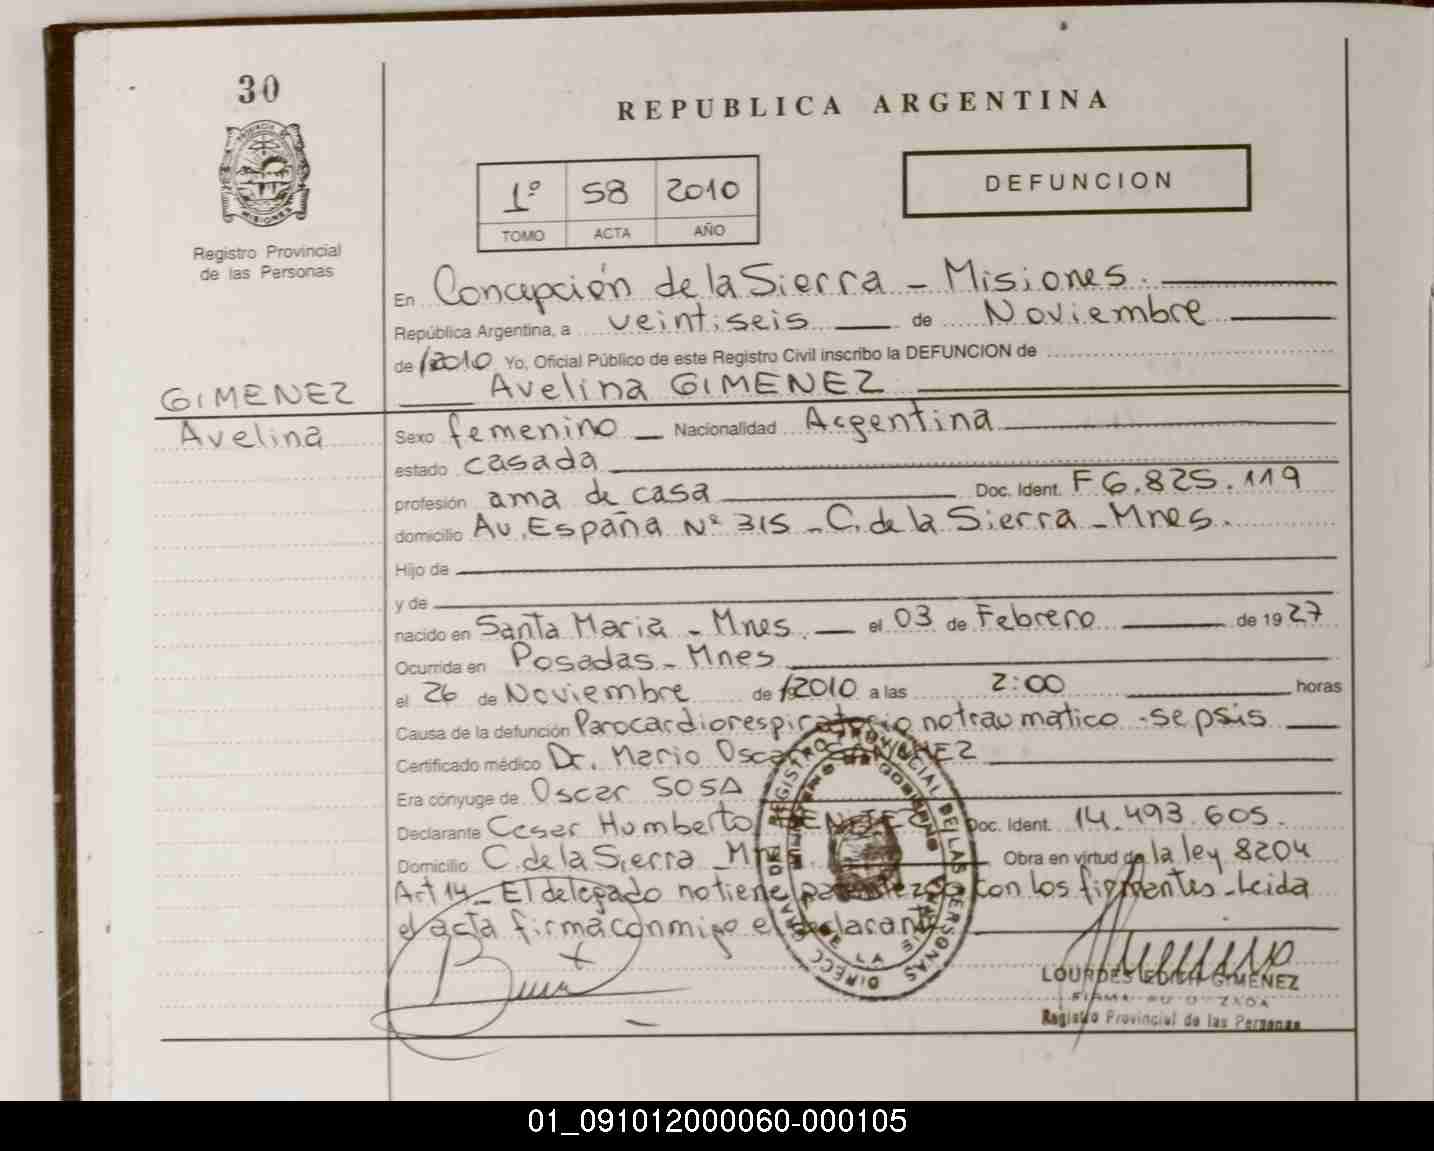 30
REPUBLICA ARGENTINA
PROVINCIA DE
MISIONES
1º 58 2010
TOMO ACTA AÑO
DEFUNCION
Registro Provincial
de las Personas
En Concepción de la Sierra - Misiones.
República Argentina, a veintiseis de Noviembre
de 2010 Yo, Oficial Público de este Registro Civil inscribo la DEFUNCION de
GIMENEZ
Avelina GIMENEZ
Avelina
Sexo femenino Nacionalidad Argentina
estado casada
profesión ama de casa Doc. Ident. F 6.825.119
domicilio Av. España Nº 315 - C. de la Sierra - Mnes.
Hijo de
y de
nacido en Santa Maria - Mnes. el 03 de Febrero de 1927
Ocurrida en Posadas - Mnes
el 26 de Noviembre de 2010 a las 2:00 horas
Causa de la defunción Parocardiorespiratorio no traumatico - sepsis
Certificado médico Dr. Mario Oscar
Era cónyuge de Oscar SOSA
Declarante Cesar Humberto Doc. Ident. 14.493.605.
Domicilio C. de la Sierra - Mnes. Obra en virtud de la ley 8204
Art 14 - El delegado no tiene parentezco con los firmantes - Leida
el acta firma conmigo el declarante
DIRECC. GRAL. DEL REGISTRO PROVINCIAL DE LAS PERSONAS
MINISTERIO DE GOBIERNO
LOURDES EDITH GIMENEZ
FIRMA AUTORIZADA
Registro Provincial de las Personas
01_091012000060-000105